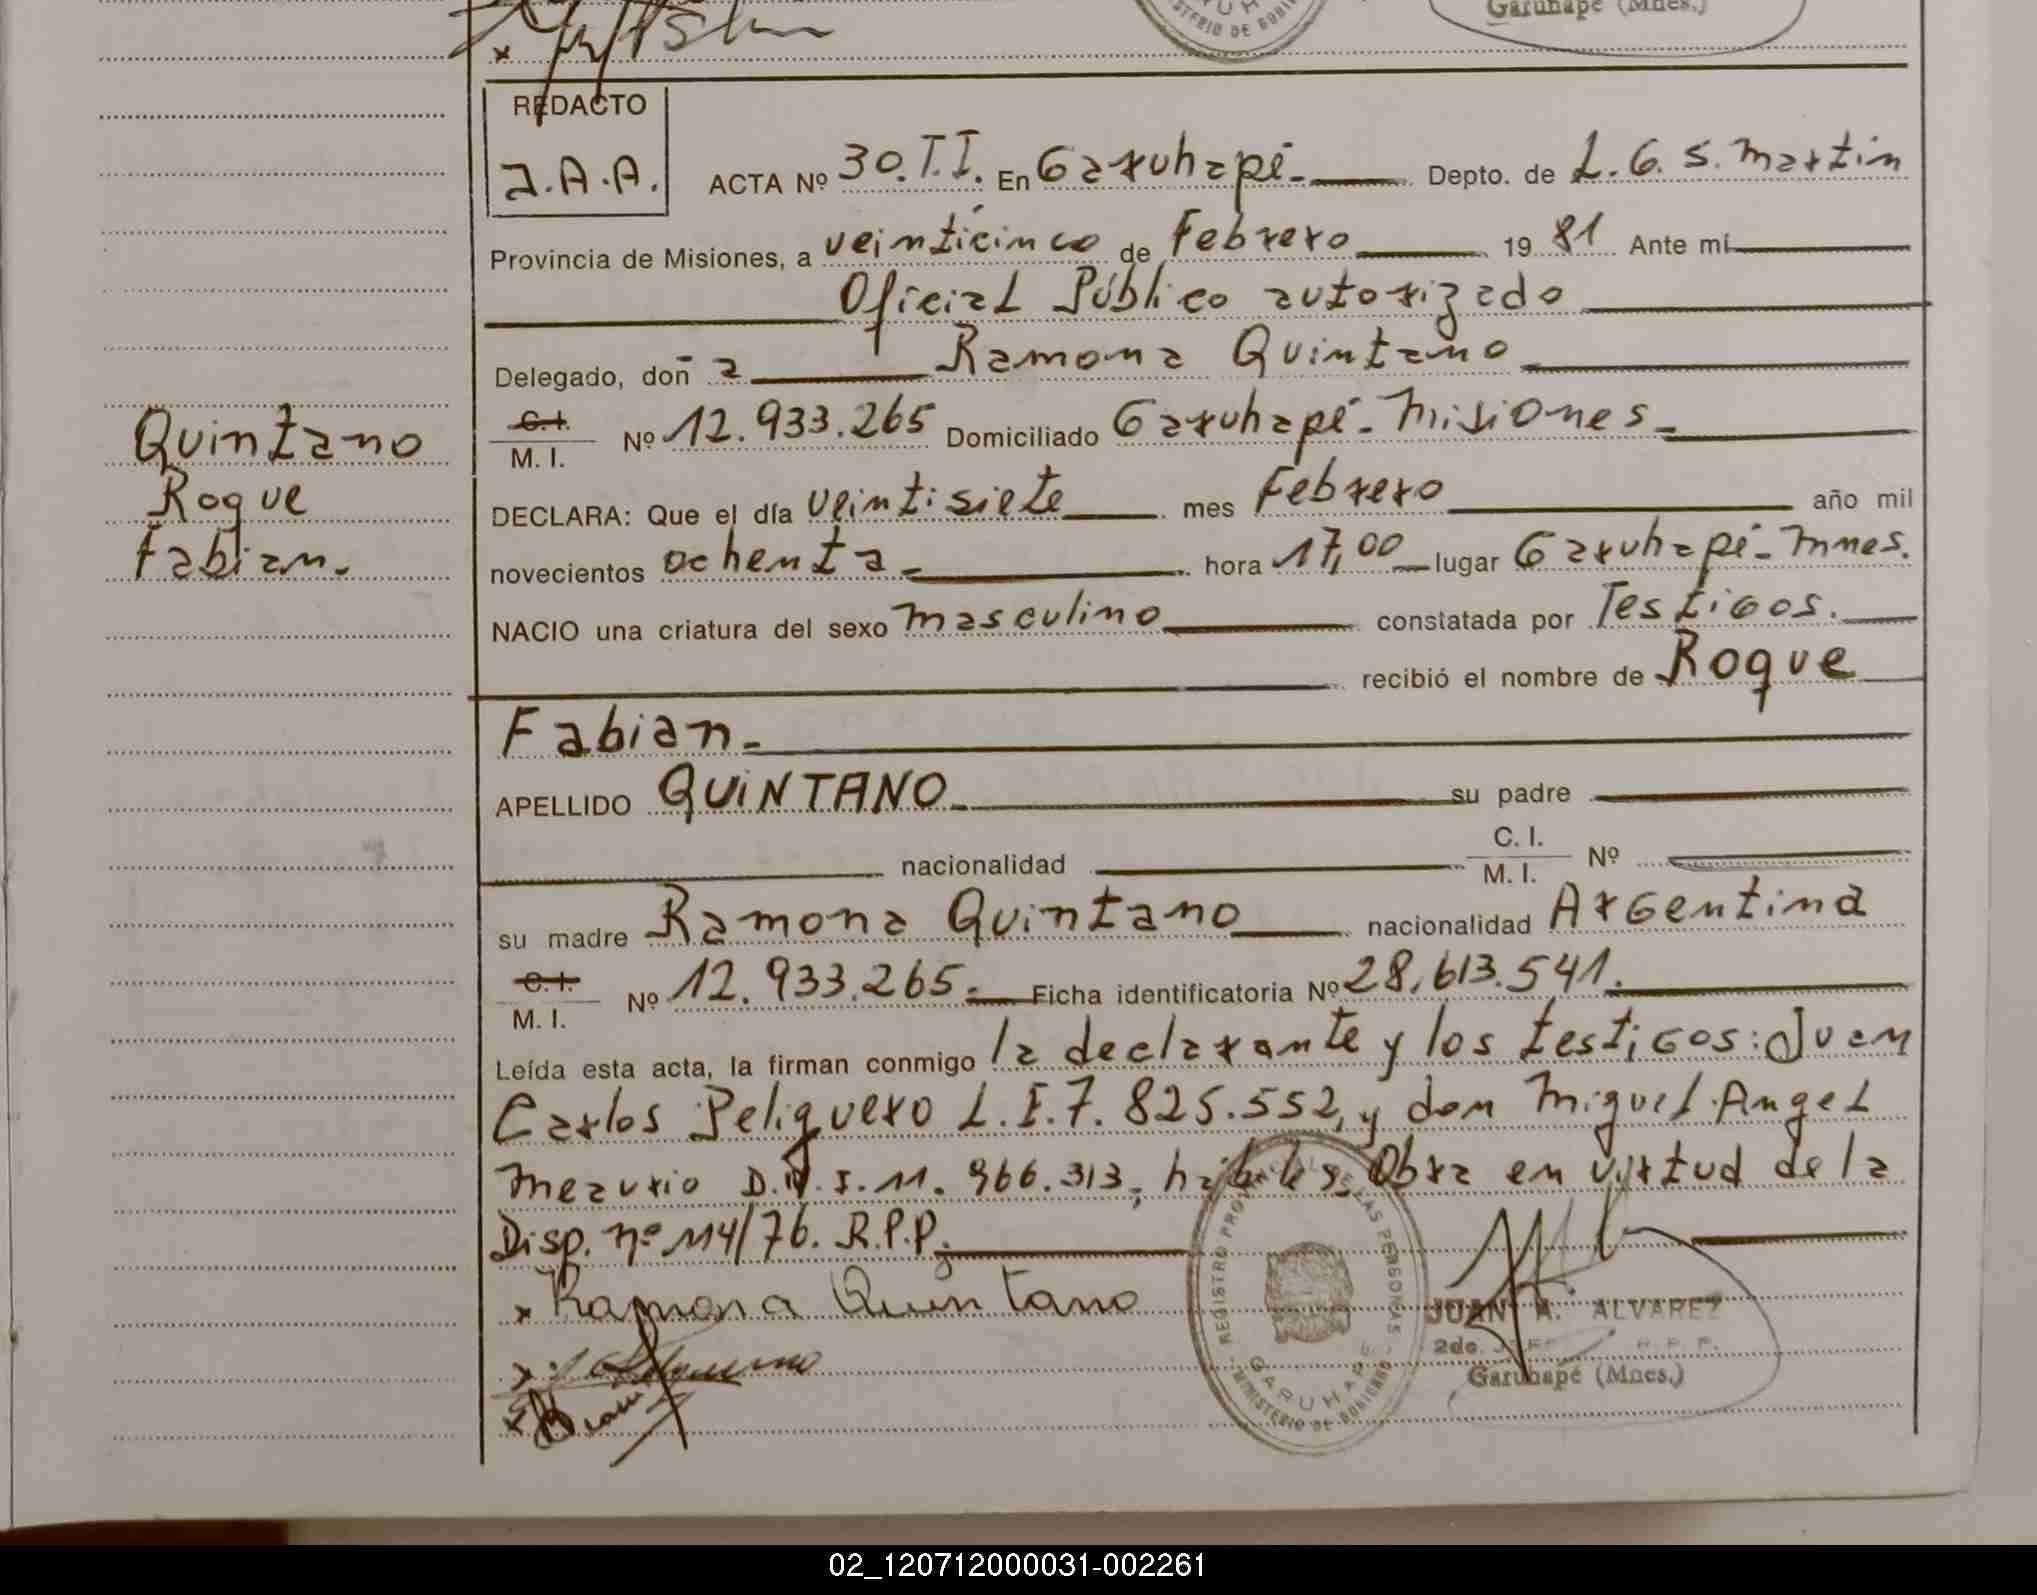 Garuhapé (Mnes.)
REDACTO
J.A.A.
ACTA Nº 30.T.I. En Garuhapé.- Depto. de L.G.S. Martin
Provincia de Misiones, a veinticinco de Febrero 19 81 Ante mí
Oficial Público autorizado
Delegado, doñ a Ramona Quintano
C.I. M. I. Nº 12.933.265 Domiciliado Garuhapé - Misiones -
Quintano
Roque
Fabian.
DECLARA: Que el día veintisiete mes Febrero año mil
novecientos ochenta - hora 17,00 lugar Garuhapé - Mnes.
NACIO una criatura del sexo masculino constatada por Testigos.
recibió el nombre de Roque
Fabian -
APELLIDO QUINTANO - su padre
nacionalidad C. I. M. I. Nº
su madre Ramona Quintano nacionalidad Argentina
C.I. M. I. Nº 12.933.265.- Ficha identificatoria Nº 28.613.541.
Leída esta acta, la firman conmigo la declarante y los testigos: Juan
Carlos Peliguero L.E.7.825.552, y don Miguel Angel
Mezurio D.N.I. 11.966.313, hábiles. Obra en virtud de la
Disp. nº 114/76. R.P.P.
x Ramona Quintano
REGISTRO PROVINCIAL DE LAS PERSONAS - GARUHAPE - MINISTERIO DE GOBIERNO
JUAN A. ALVAREZ
2do. JEFE R.P.P.
Garuhapé (Mnes.)
02_120712000031-002261